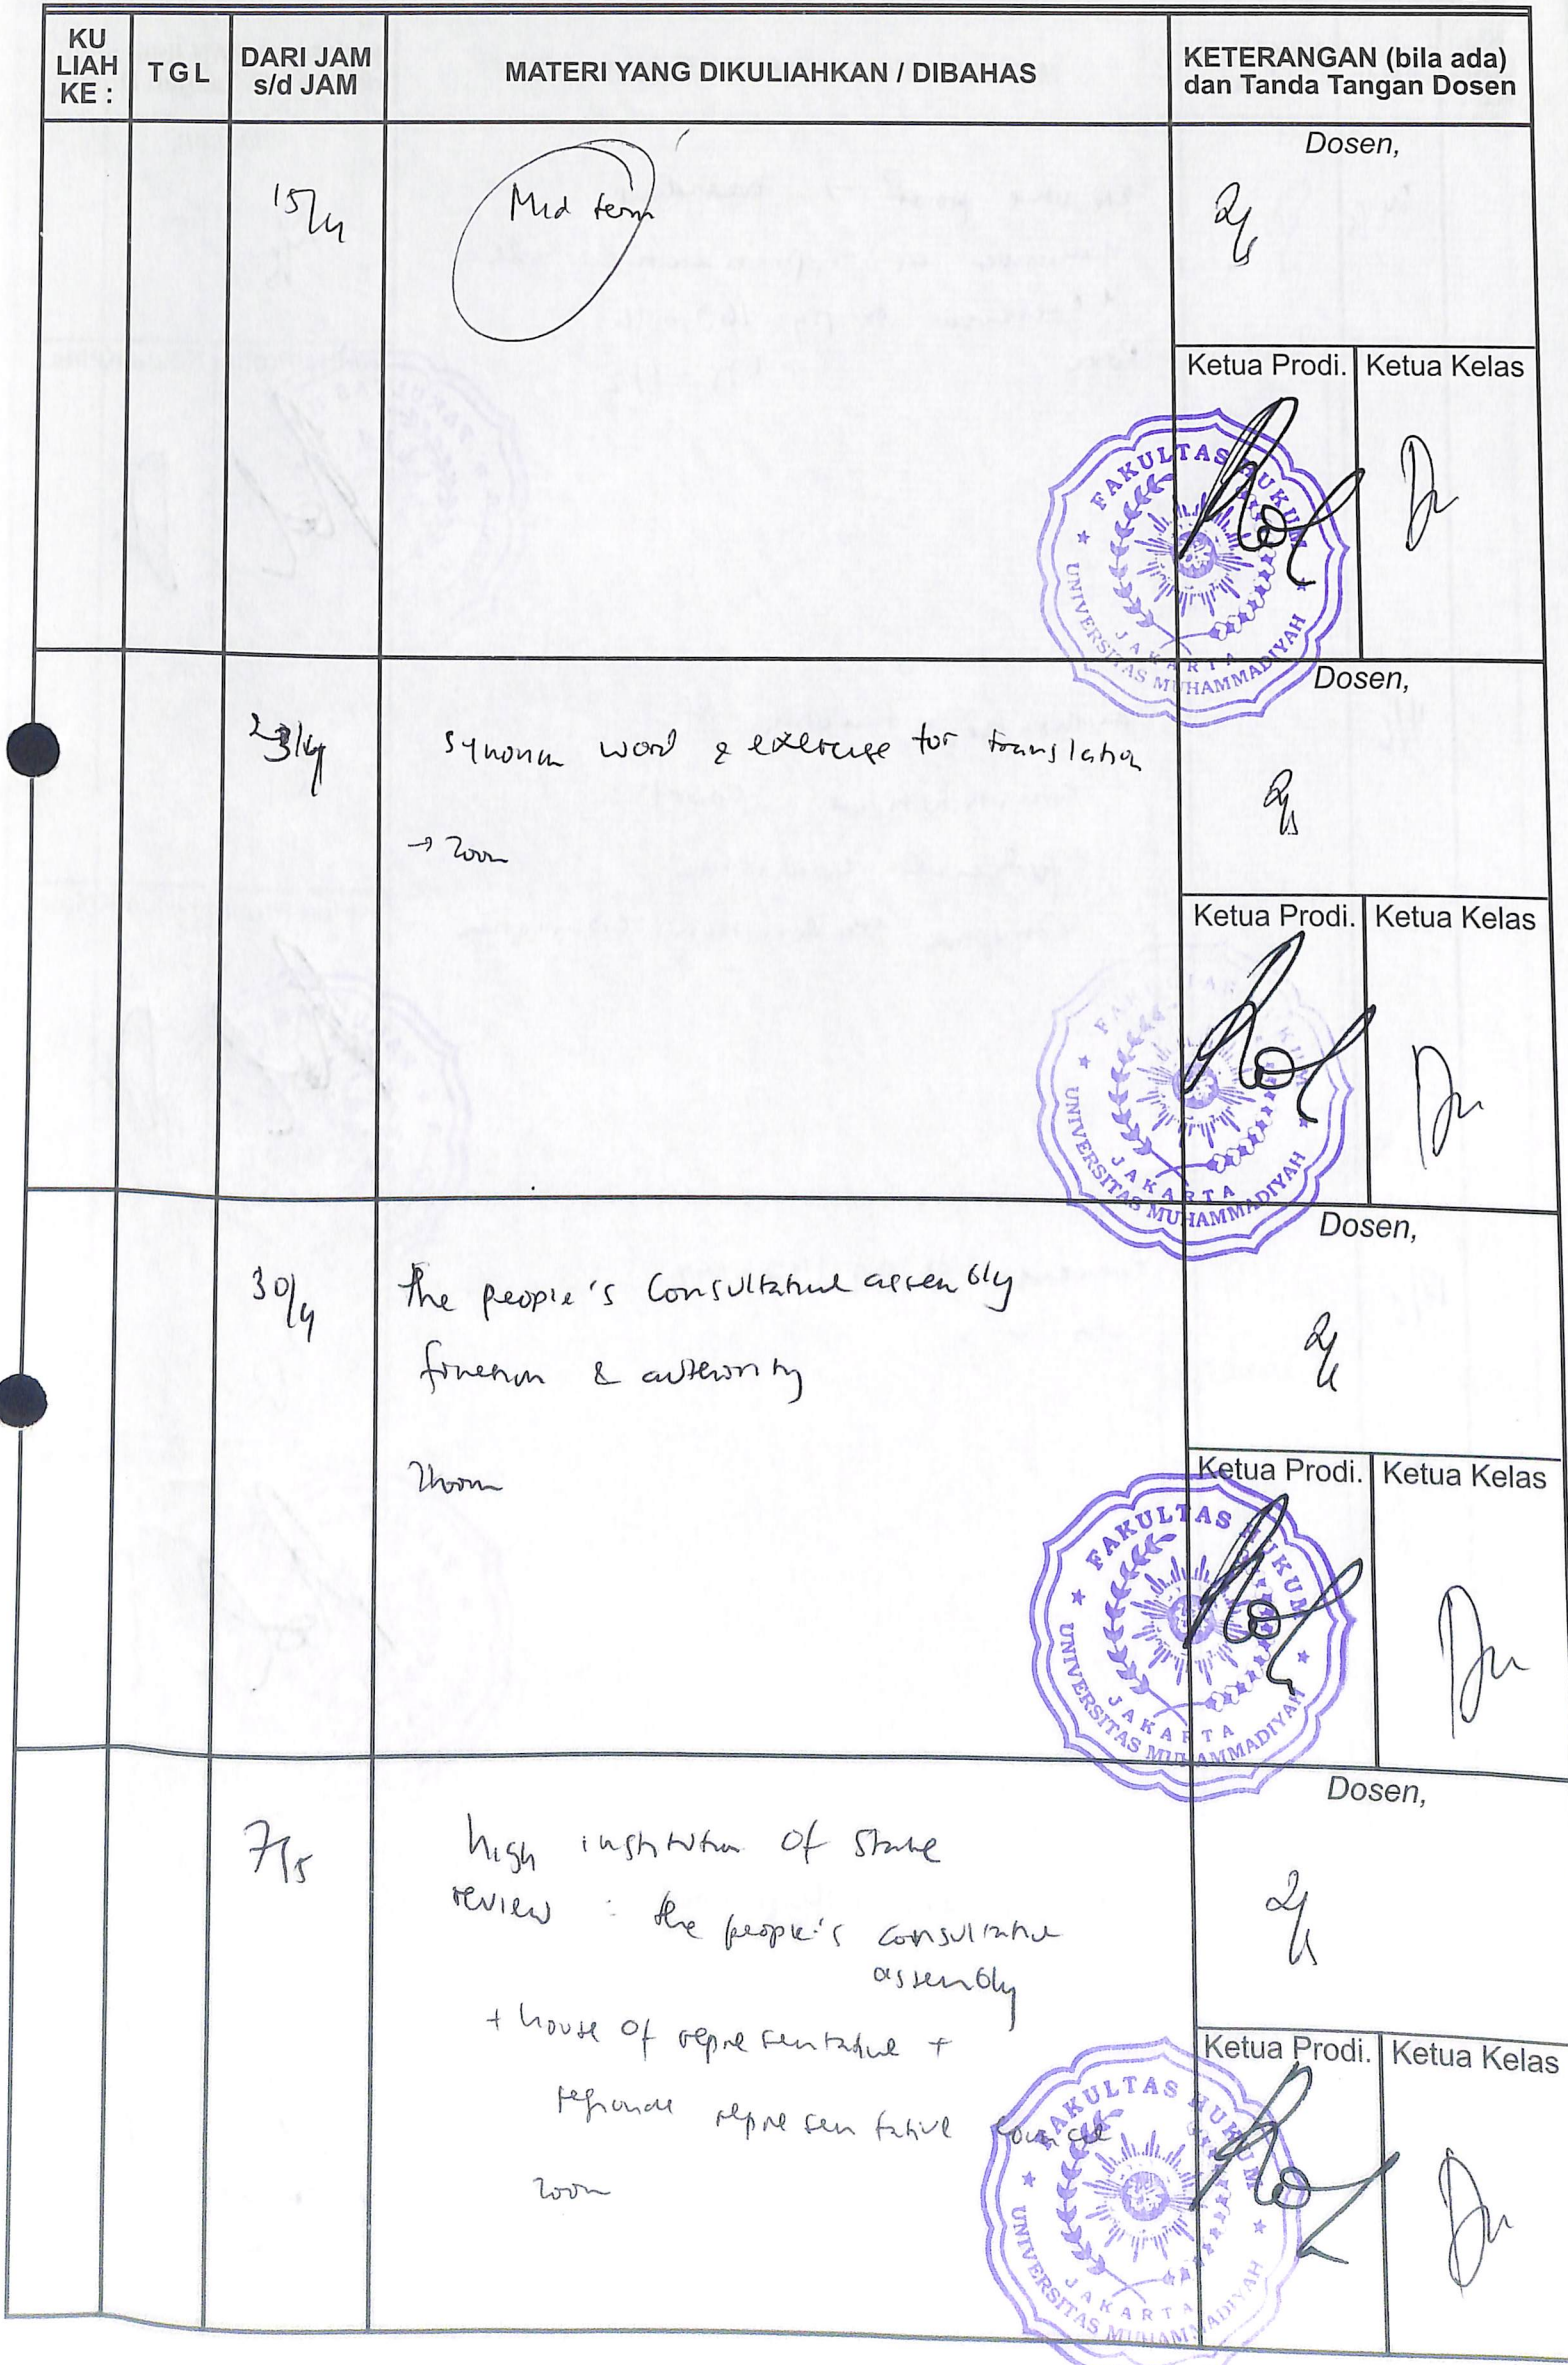 KU LIAH KE :
TGL
DARI JAM s/d JAM
MATERI YANG DIKULIAHKAN / DIBAHAS
KETERANGAN (bila ada) dan Tanda Tangan Dosen
15/4
Mid term
Dosen,
Ketua Prodi.
Ketua Kelas
FAKULTAS HUKUM
UNIVERSITAS MUHAMMADIYAH
JAKARTA
23/4
synonim word & exercise for translation
→ Zoom
Dosen,
Ketua Prodi.
Ketua Kelas
FAKULTAS HUKUM
UNIVERSITAS MUHAMMADIYAH
JAKARTA
30/4
the people's Consultative assembly
function & authority
Zhoom
Dosen,
Ketua Prodi.
Ketua Kelas
FAKULTAS HUKUM
UNIVERSITAS MUHAMMADIYAH
JAKARTA
7/5
high institution of state
review : the people's consultative
assembly
+ house of representative +
regional representative council
zoom
Dosen,
Ketua Prodi.
Ketua Kelas
FAKULTAS HUKUM
UNIVERSITAS MUHAMMADIYAH
JAKARTA